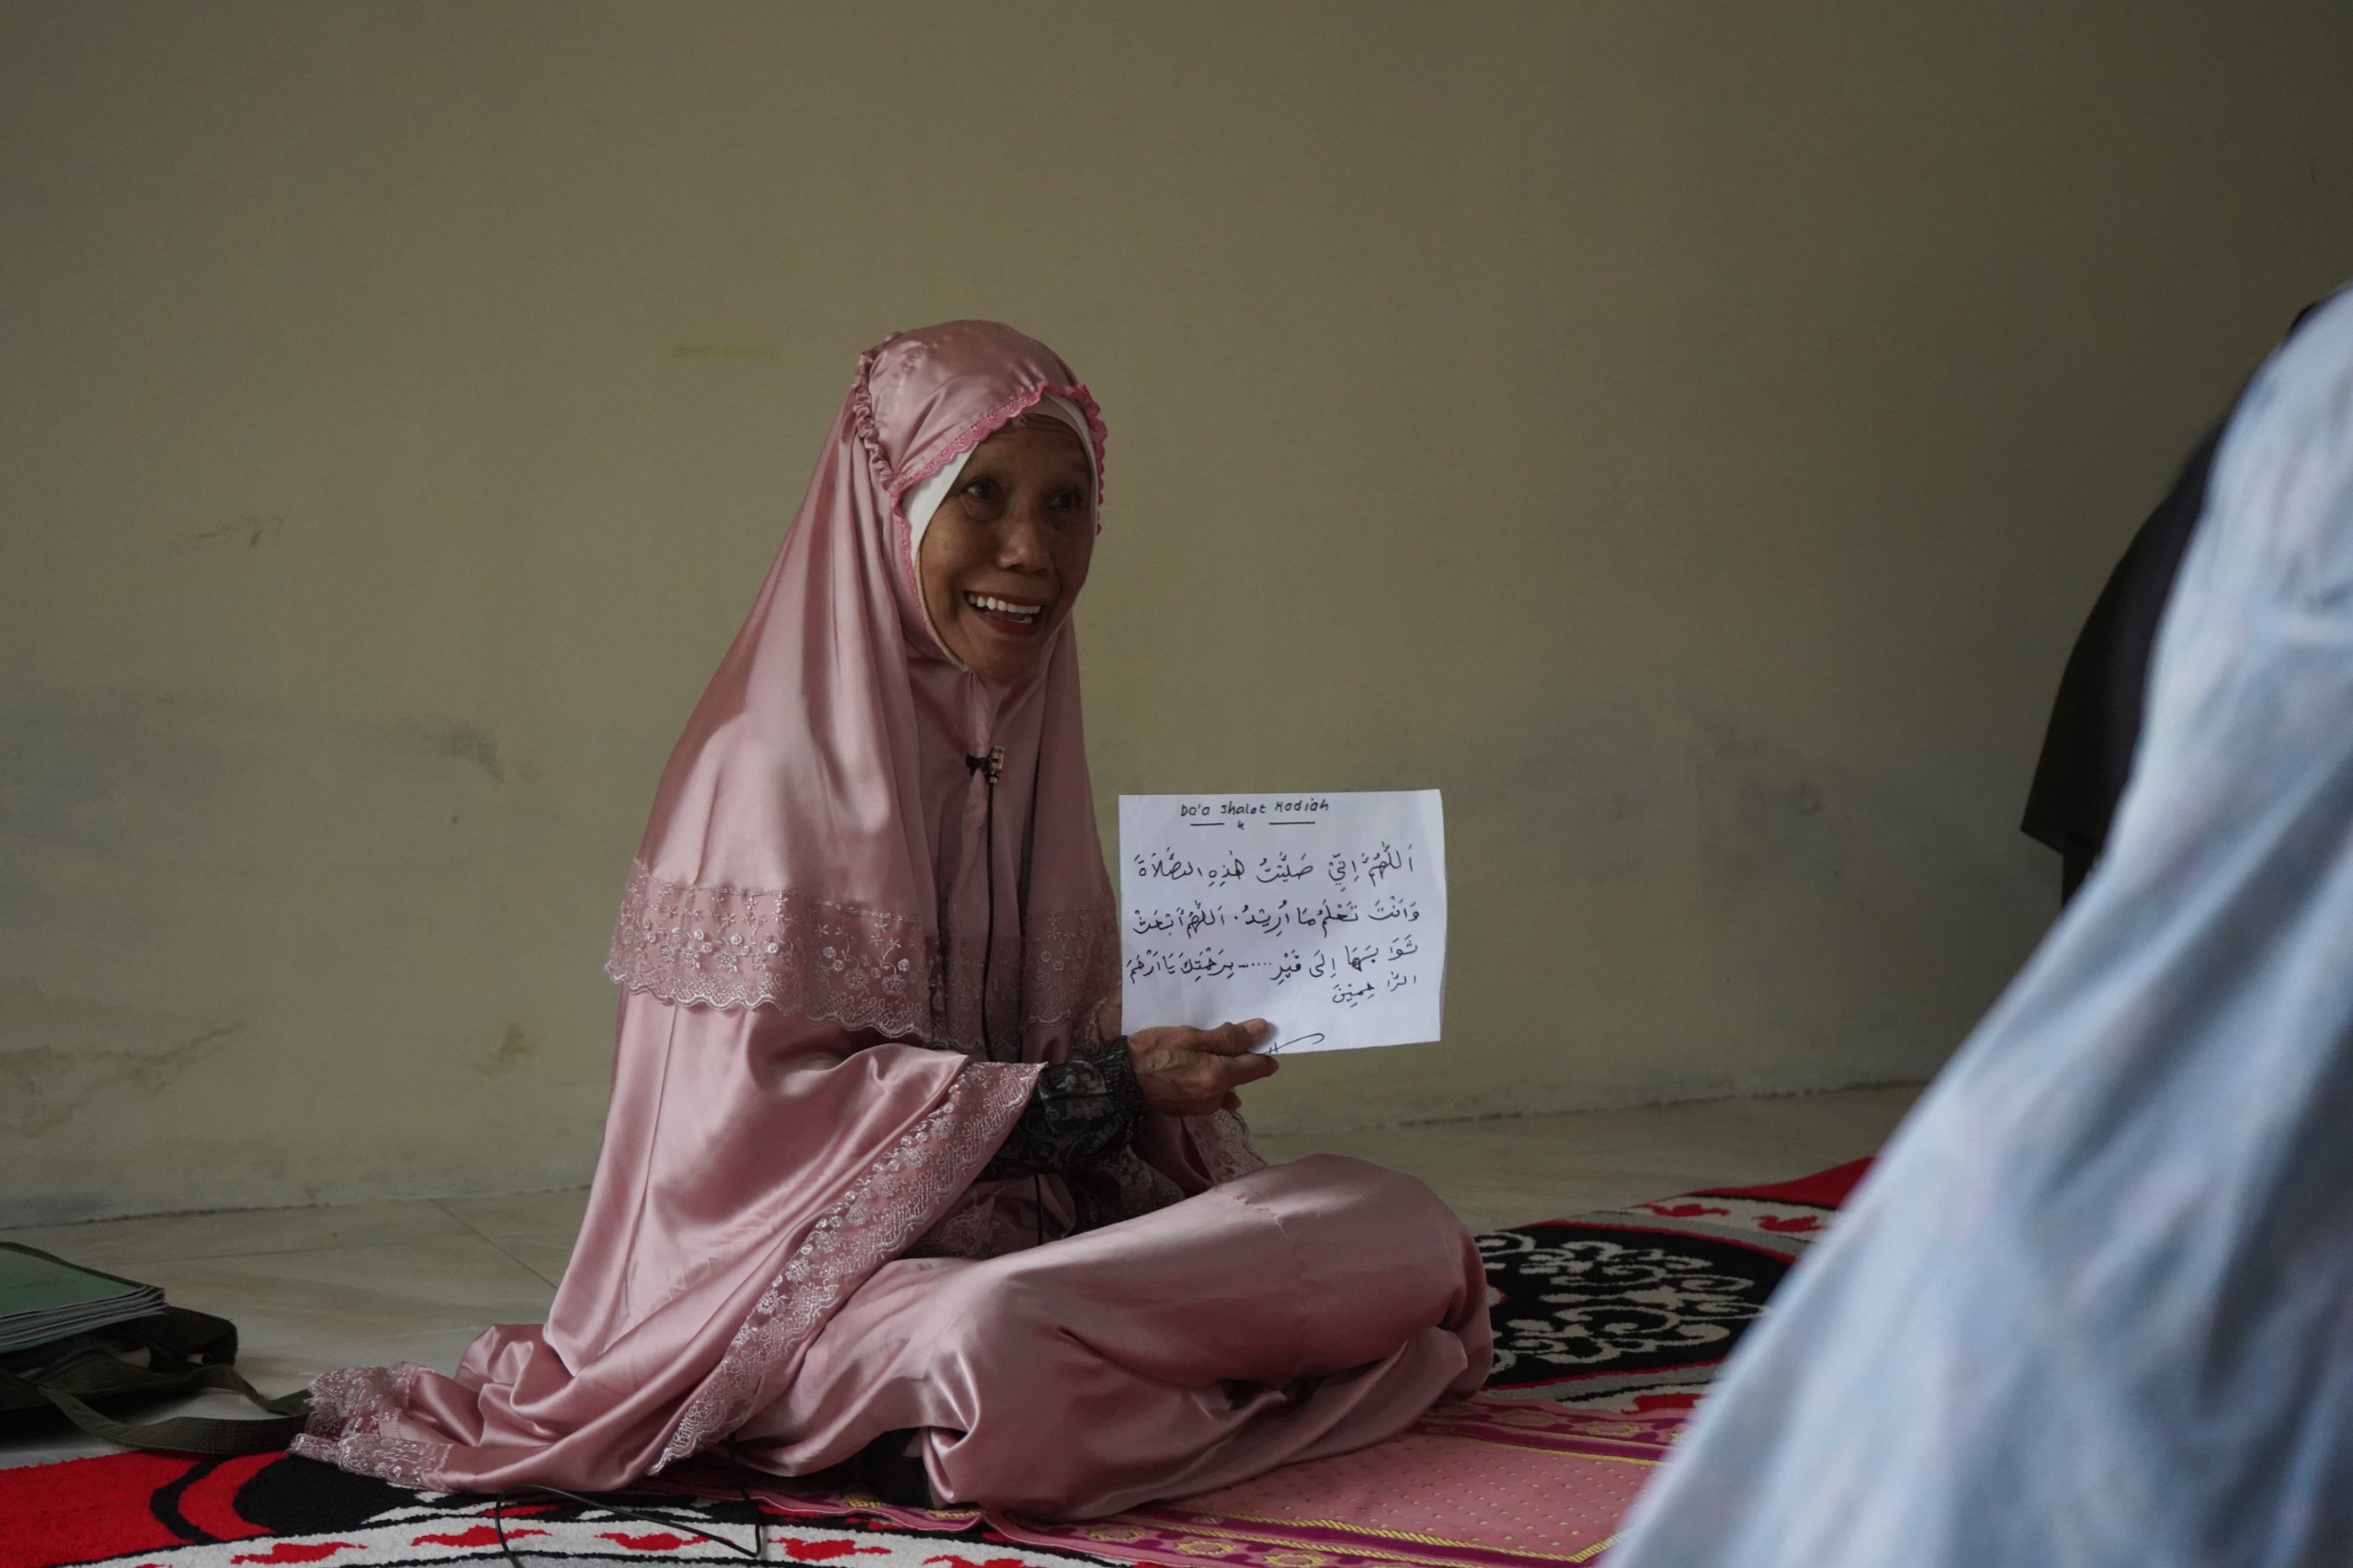 Do'a Shalat Hadiah
اَللّٰهُمَّ اِنِّيْ صَلَّيْتُ هٰذِهِ الصَّلَاةَ
وَاَنْتَ تَعْلَمُ مَا اُرِيْدُ. اَللّٰهُمَّ ابْعَثْ
ثَوَا بَهَا اِلَى قَبْرِ ....... بِرَحْمَتِكَ يَا اَرْحَمَ
الرَّا حِمِيْنَ